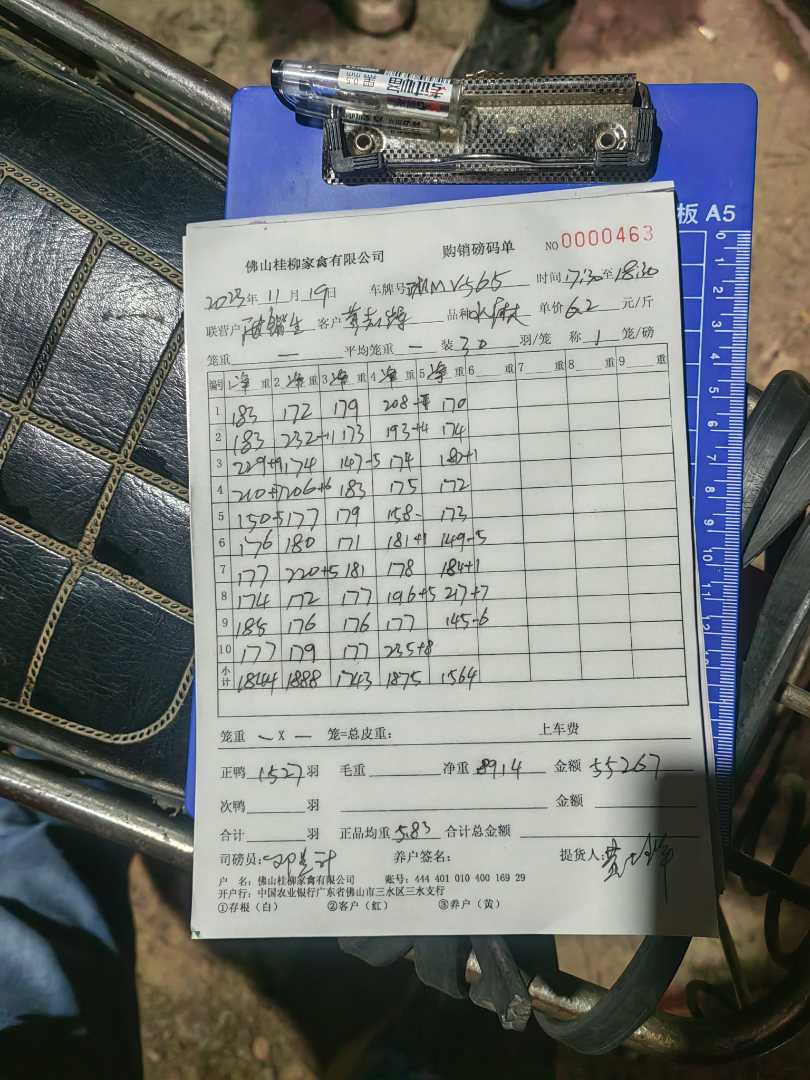 板 A5
佛山桂柳家禽有限公司 购销磅码单 NO 0000463
2023年 11月 19日 车牌号 MV565 时间 17:30至18:30
联营户 客户 品种 水麻 单价 6.2 元/斤
笼重 — 平均笼重 — 装 30 羽/笼 称 1 笼/磅
编号 1净重 2净重 3净重 4净重 5净重 6 重 7 重 8 重 9 重
1 183 172 179 208 170
2 183 232+11 173 193+4 174
3 229+9 174 147-5 174 180+1
4 210+7 206+6 183 175 172
5 150-5 177 179 158- 173
6 176 180 171 181+1 149-5
7 177 220+5 181 178 184+1
8 174 172 177 196+5 217+7
9 185 176 176 177 145-6
10 177 179 177 235+8
小计 1844 1888 1743 1875 1564
笼重 — X — 笼=总皮重: 上车费
正鸭 1527 羽 毛重 净重 8914 金额 55267
次鸭 羽 金额
合计 羽 正品均重 5.83 合计总金额
司磅员: 养户签名: 提货人:
户 名: 佛山桂柳家禽有限公司 账号: 444 401 010 400 169 29
开户行: 中国农业银行广东省佛山市三水区三水支行
①存根（白） ②客户（红） ③养户（黄）